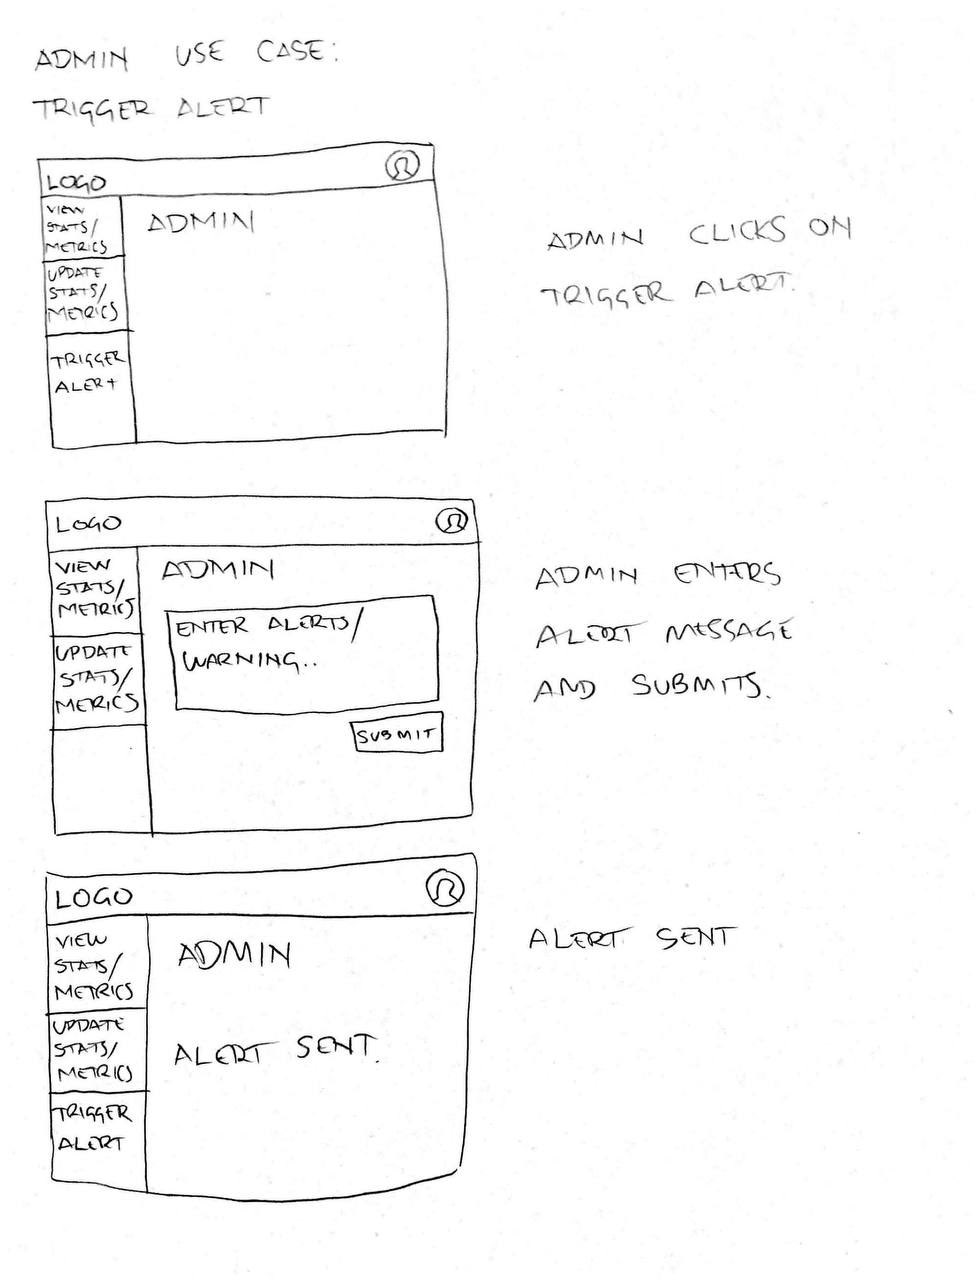 ADMIN USE CASE:
TRIGGER ALERT
LOGO
VIEW
STATS/
METRICS
UPDATE
STATS/
METRICS
TRIGGER
ALERT
ADMIN
ADMIN CLICKS ON
TRIGGER ALERT.
LOGO
VIEW
STATS/
METRICS
UPDATE
STATS/
METRICS
ADMIN
ENTER ALERTS/
WARNING..
SUBMIT
ADMIN ENTERS
ALERT MESSAGE
AND SUBMITS.
LOGO
VIEW
STATS/
METRICS
UPDATE
STATS/
METRICS
TRIGGER
ALERT
ADMIN
ALERT SENT.
ALERT SENT